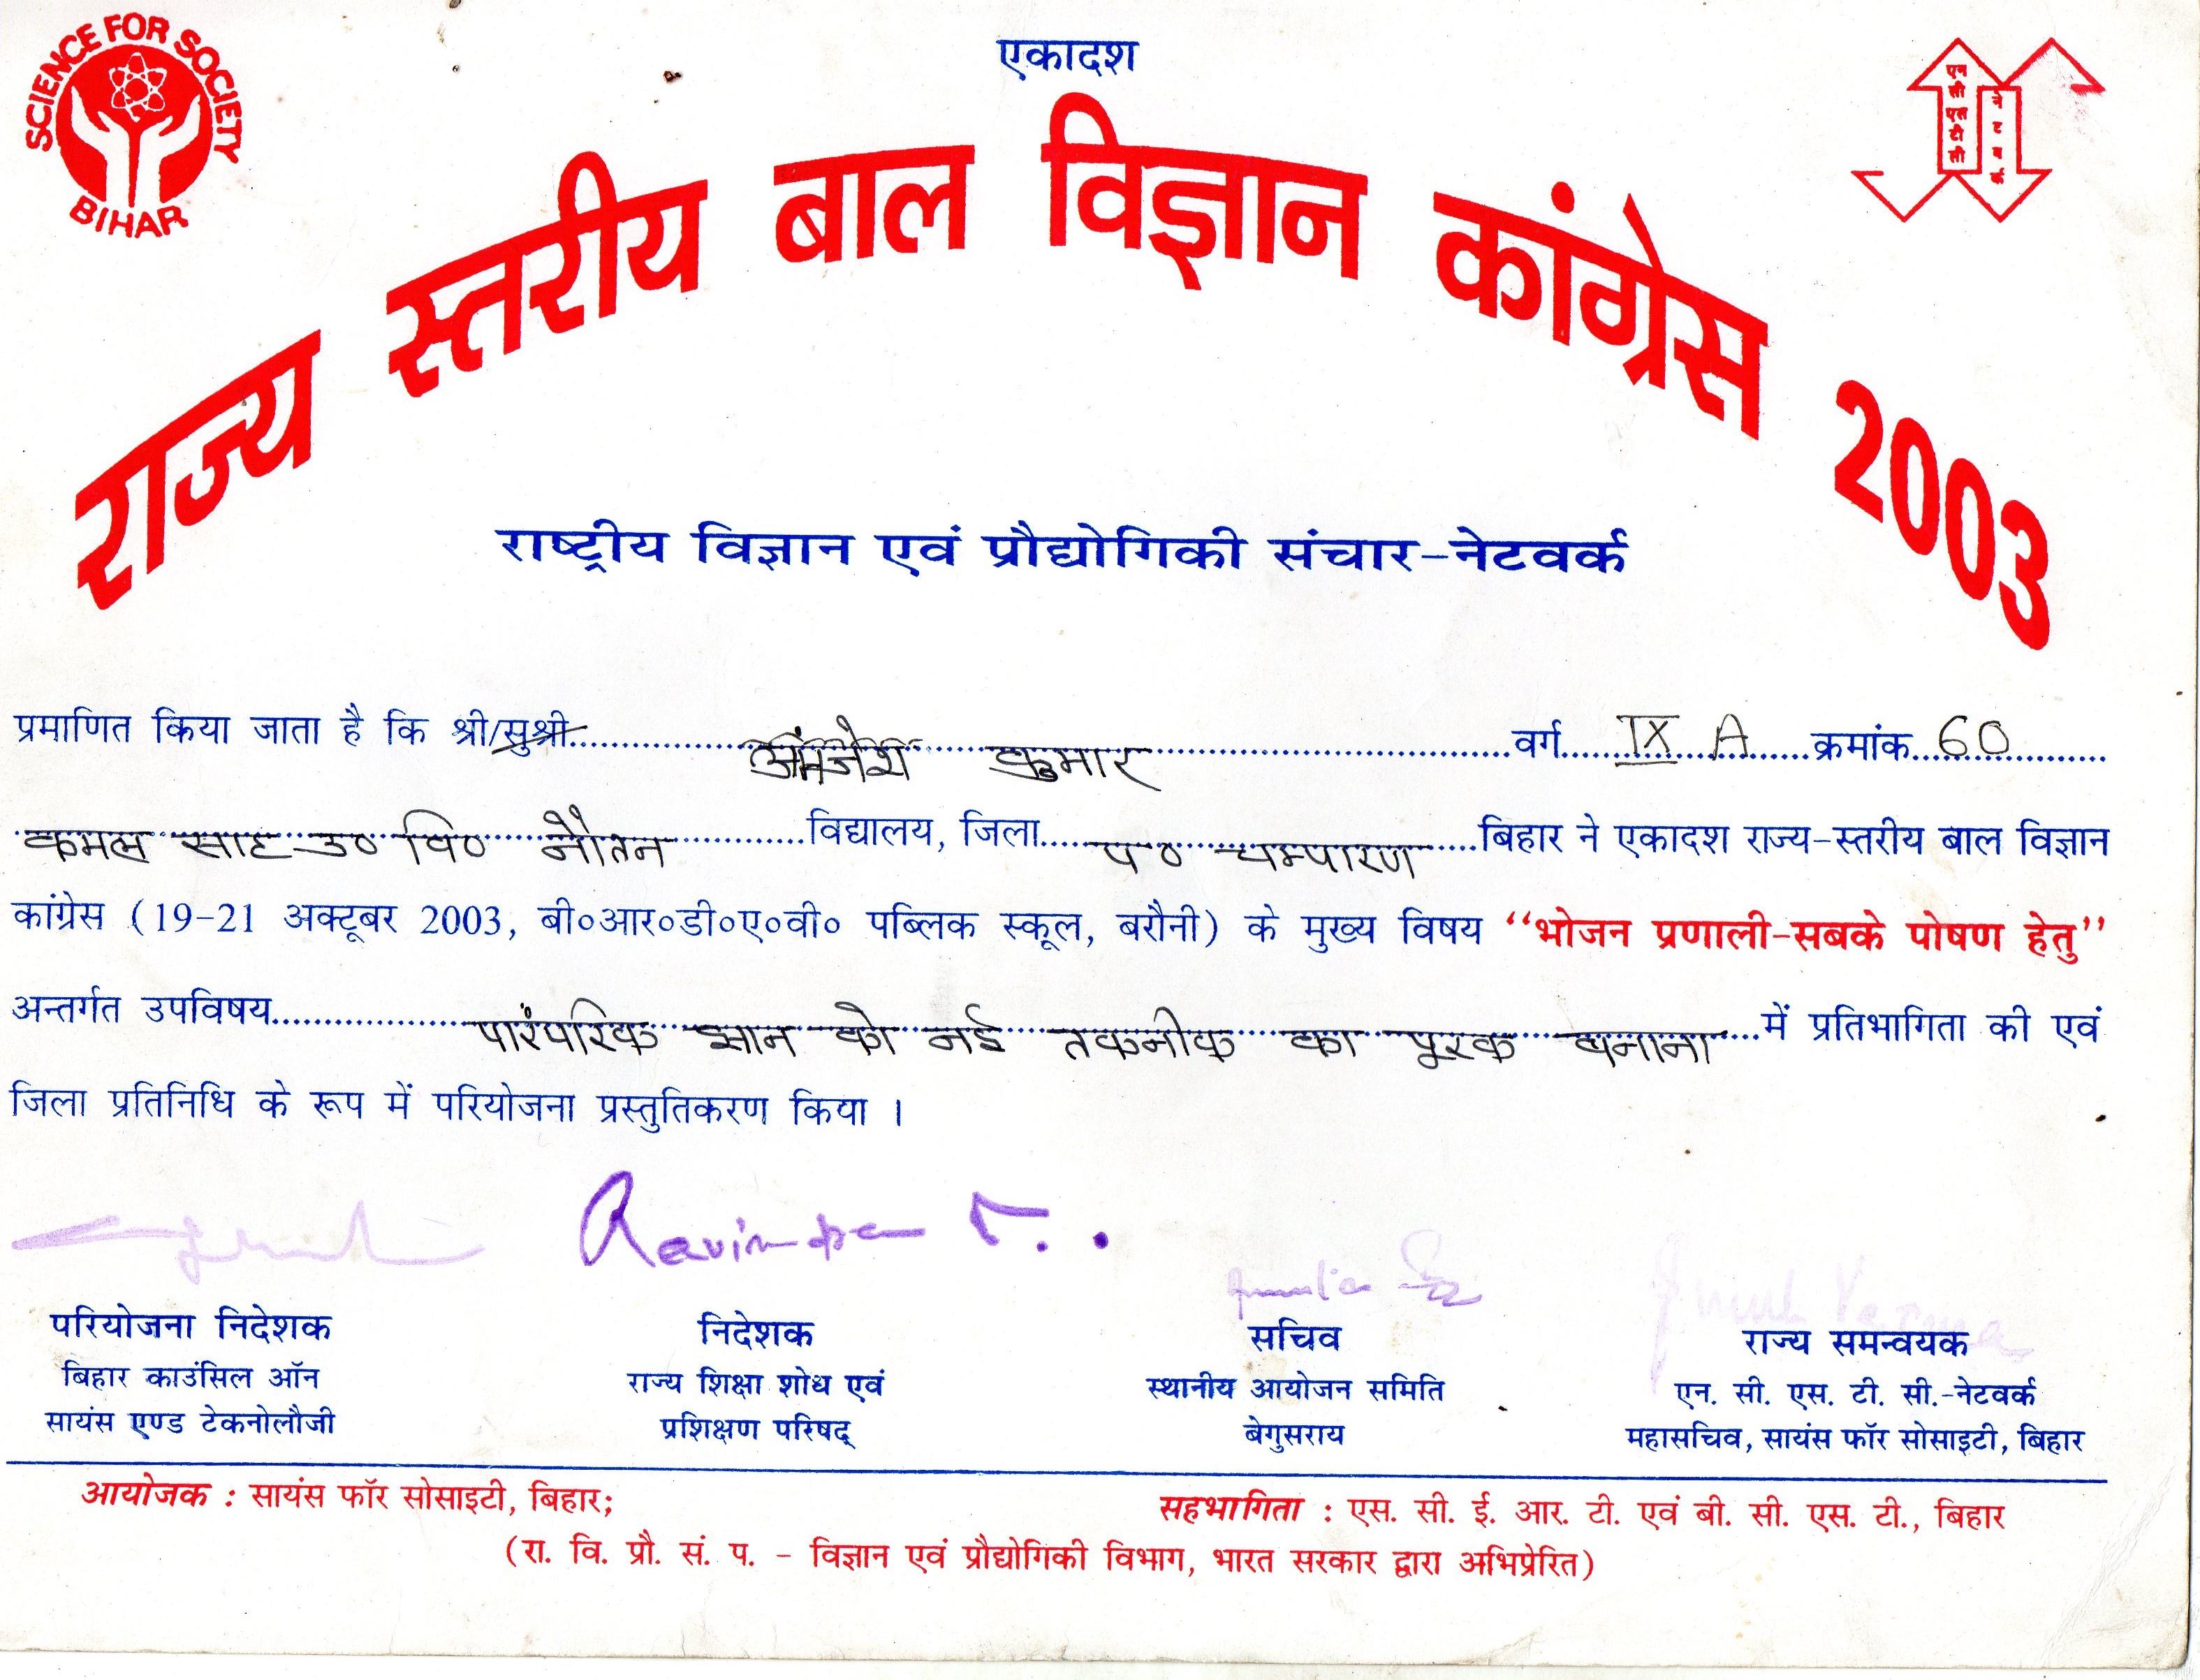 SCIENCE FOR SOCIETY
BIHAR
एकादश
एन सी एस टी सी
नेटवर्क
राज्य स्तरीय बाल विज्ञान कांग्रेस 2003
राष्ट्रीय विज्ञान एवं प्रौद्योगिकी संचार-नेटवर्क
प्रमाणित किया जाता है कि श्री/सुश्री कुमार वर्ग IX A क्रमांक 60
कमल साह उ० वि० नौतन विद्यालय, जिला प० चम्पारण बिहार ने एकादश राज्य-स्तरीय बाल विज्ञान
कांग्रेस (19-21 अक्टूबर 2003, बी०आर०डी०ए०वी० पब्लिक स्कूल, बरौनी) के मुख्य विषय “भोजन प्रणाली-सबके पोषण हेतु”
अन्तर्गत उपविषय पारंपरिक ज्ञान को नई तकनीक का पूरक बनाना में प्रतिभागिता की एवं
जिला प्रतिनिधि के रूप में परियोजना प्रस्तुतिकरण किया ।
परियोजना निदेशक निदेशक सचिव राज्य समन्वयक
बिहार काउंसिल ऑन राज्य शिक्षा शोध एवं स्थानीय आयोजन समिति एन. सी. एस. टी. सी.-नेटवर्क
सायंस एण्ड टेकनोलौजी प्रशिक्षण परिषद् बेगुसराय महासचिव, सायंस फॉर सोसाइटी, बिहार
आयोजक : सायंस फॉर सोसाइटी, बिहार; सहभागिता : एस. सी. ई. आर. टी. एवं बी. सी. एस. टी., बिहार
(रा. वि. प्रौ. सं. प. - विज्ञान एवं प्रौद्योगिकी विभाग, भारत सरकार द्वारा अभिप्रेरित)